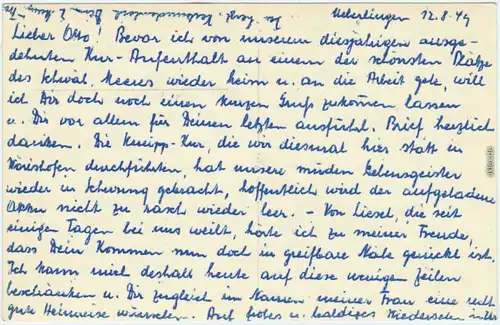 Ueberlingen 12.8.49
Lieber Otto! Bevor ich von unserem diesjährigen ausge-
dehnten Kur-Aufenthalt an einem der schönsten Plätze
des schwäb. Meeres wieder heim u. an die Arbeit gehe, will
ich Dir doch noch einen kurzen Gruß zukommen lassen
u. Dir vor allem für Deinen letzten ausführl. Brief herzlich
danken. Die Kneipp-Kur, die wir diesmal hier statt in
Wörishofen durchführten, hat unsere müden Lebensgeister
wieder in Schwung gebracht, hoffentlich wird der aufgeladene
Akku nicht zu rasch wieder leer. - Von Liesel, die seit
einigen Tagen bei uns weilt, hörte ich zu meiner Freude,
dass Dein Kommen nun doch in greifbare Nähe gerückt ist.
Ich kann mich deshalb heute auf diese wenigen Zeilen
beschränken u. Dir zugleich im Namen meiner Frau eine recht
gute Heimreise wünschen. Auf frohes u. baldiges Wiedersehen